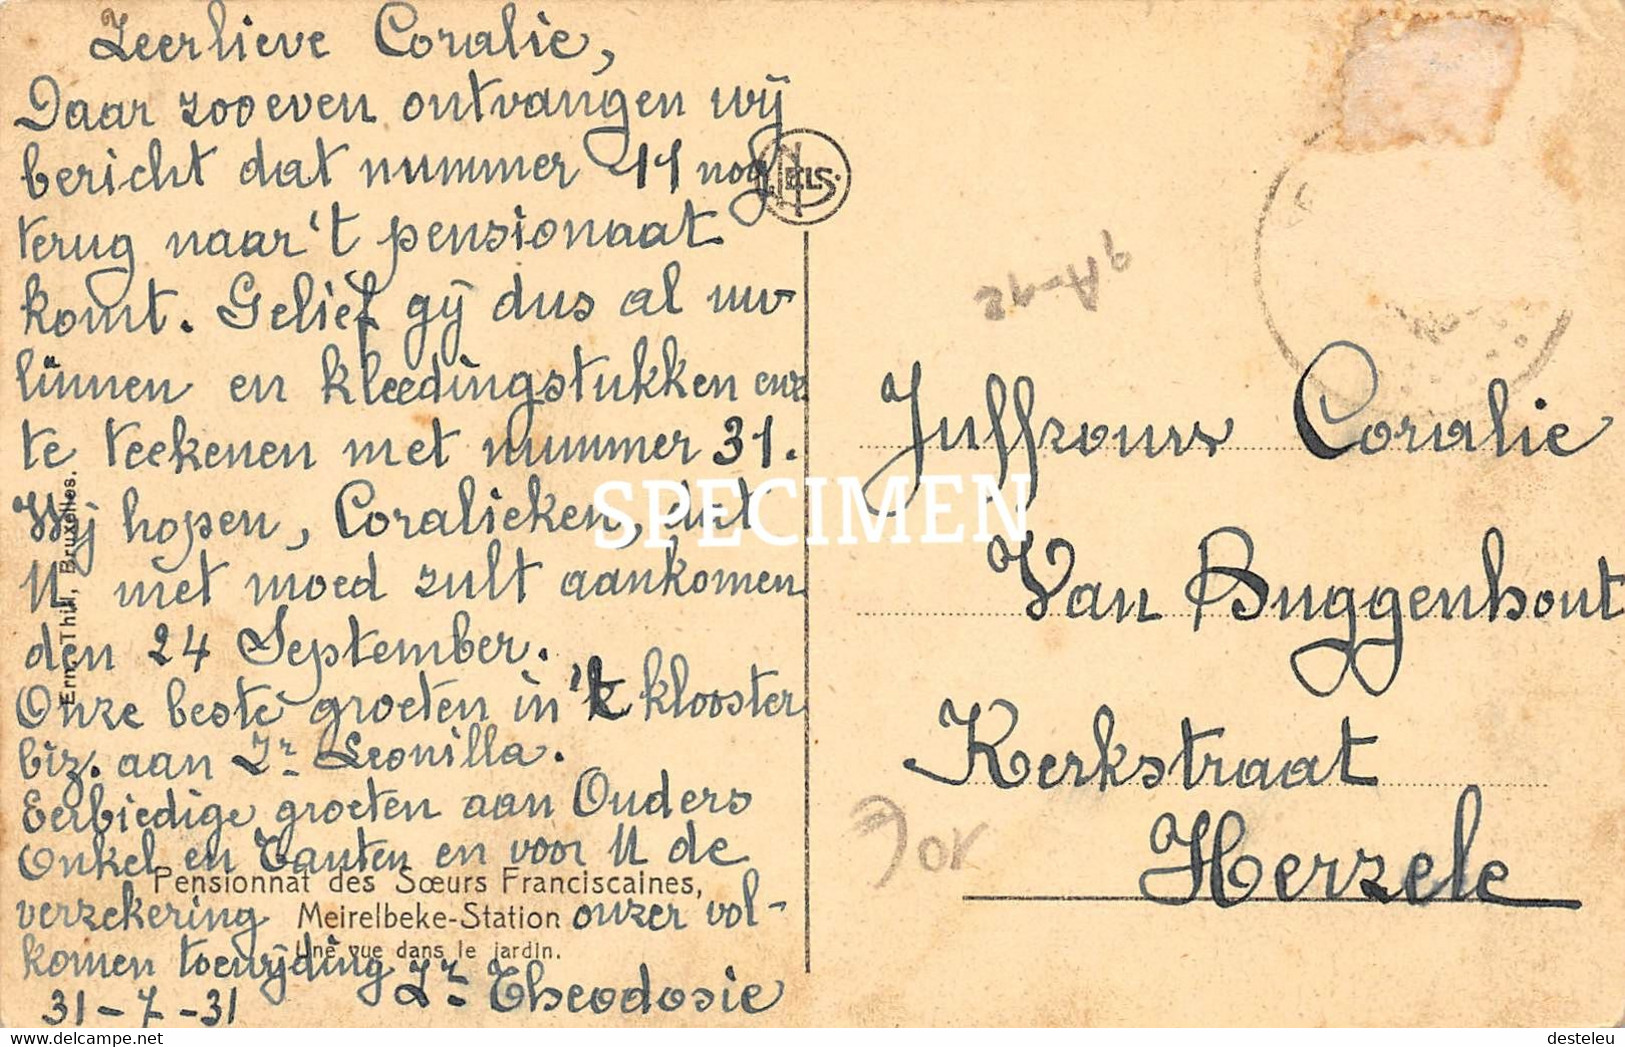 Zeerlieve Coralie,
Daar zooeven ontvangen wij
bericht dat nummer 11 nog
terug naar 't pensionaat
komt. Gelief gij dus al uw
linnen en kleedingstukken enz
te teekenen met nummer 31.
Wij hopen, Coralieken, dat
U met moed zult aankomen
den 24 September.
Onze beste groeten in 't klooster
biz. aan Zr Leonilla.
Eerbiedige groeten aan Ouders
Onkel en Tanten en voor U de
verzekering onzer vol-
komen toewijding Zr Theodosie
31-7-31
Pensionnat des Sœurs Franciscaines,
Meirelbeke-Station
Une vue dans le jardin.
Ern. Thill, Bruxelles.
NELS.
SPECIMEN
Juffrouw Coralie
Van Buggenhout
Kerkstraat
Herzele
www.delcampe.net
desteleu